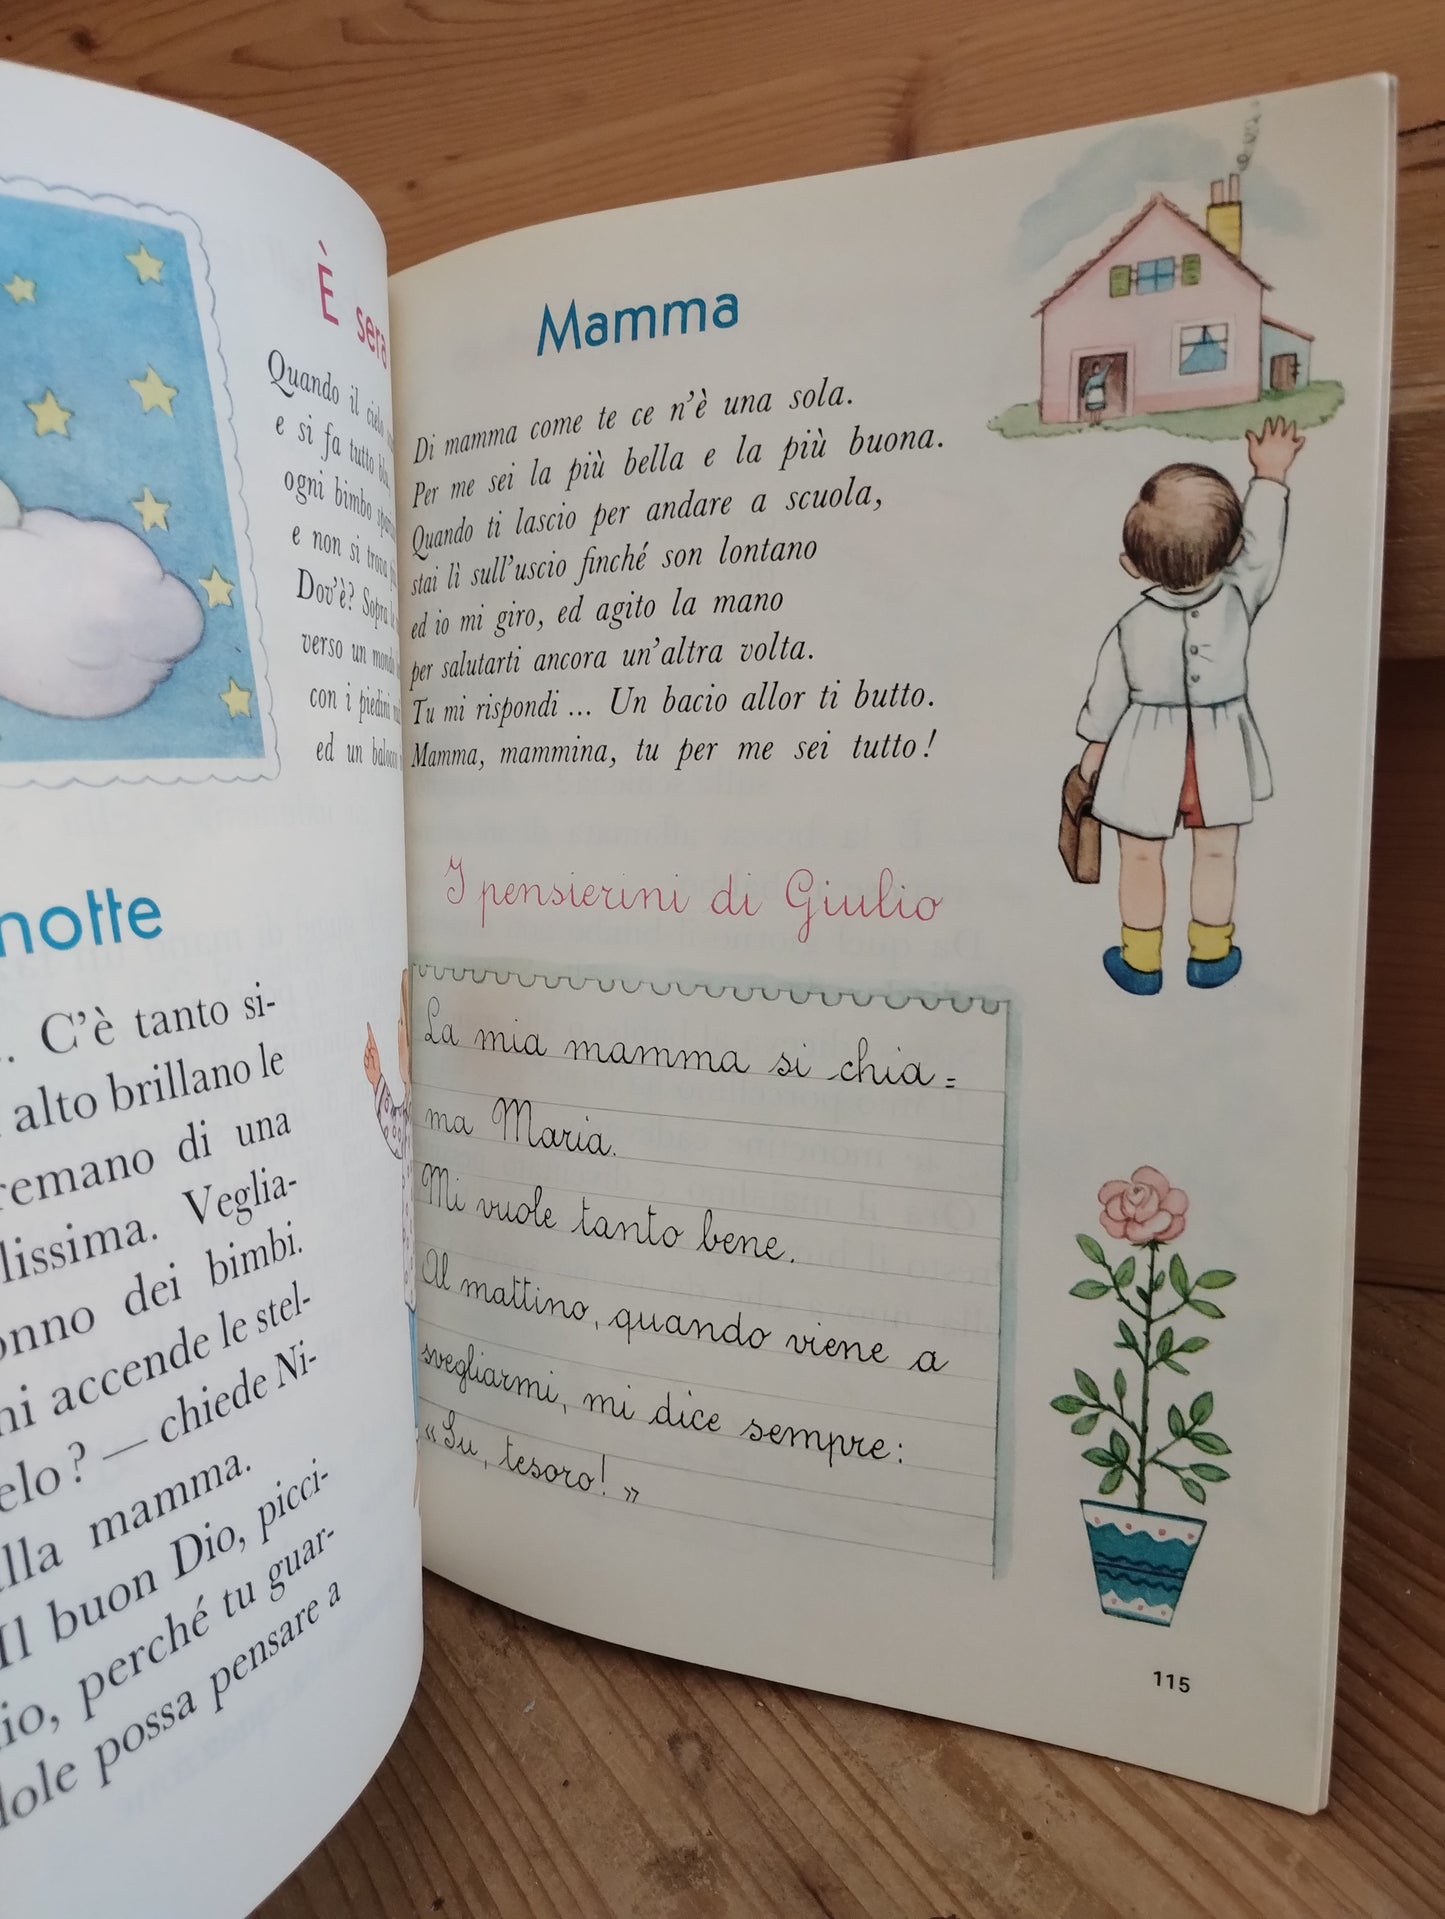 È sera
Quando il cielo
e si fa tutto blu,
ogni bimbo
e non si trova
Dov'è? Sopra
verso un mondo
con i piedini
ed un balocco
notte
.. C'è tanto si-
alto brillano le
remano di una
lissima. Veglia-
onno dei bimbi.
ni accende le stel-
elo? — chiede Ni-
lla mamma.
Il buon Dio, picci-
io, perché tu guar-
dole possa pensare a
Mamma
Di mamma come te ce n'è una sola.
Per me sei la più bella e la più buona.
Quando ti lascio per andare a scuola,
stai lì sull'uscio finché son lontano
ed io mi giro, ed agito la mano
per salutarti ancora un'altra volta.
Tu mi rispondi ... Un bacio allor ti butto.
Mamma, mammina, tu per me sei tutto!
I pensierini di Giulio
La mia mamma si chia=
ma Maria.
Mi vuole tanto bene.
Al mattino, quando viene a
svegliarmi, mi dice sempre:
«Su, tesoro!»
115